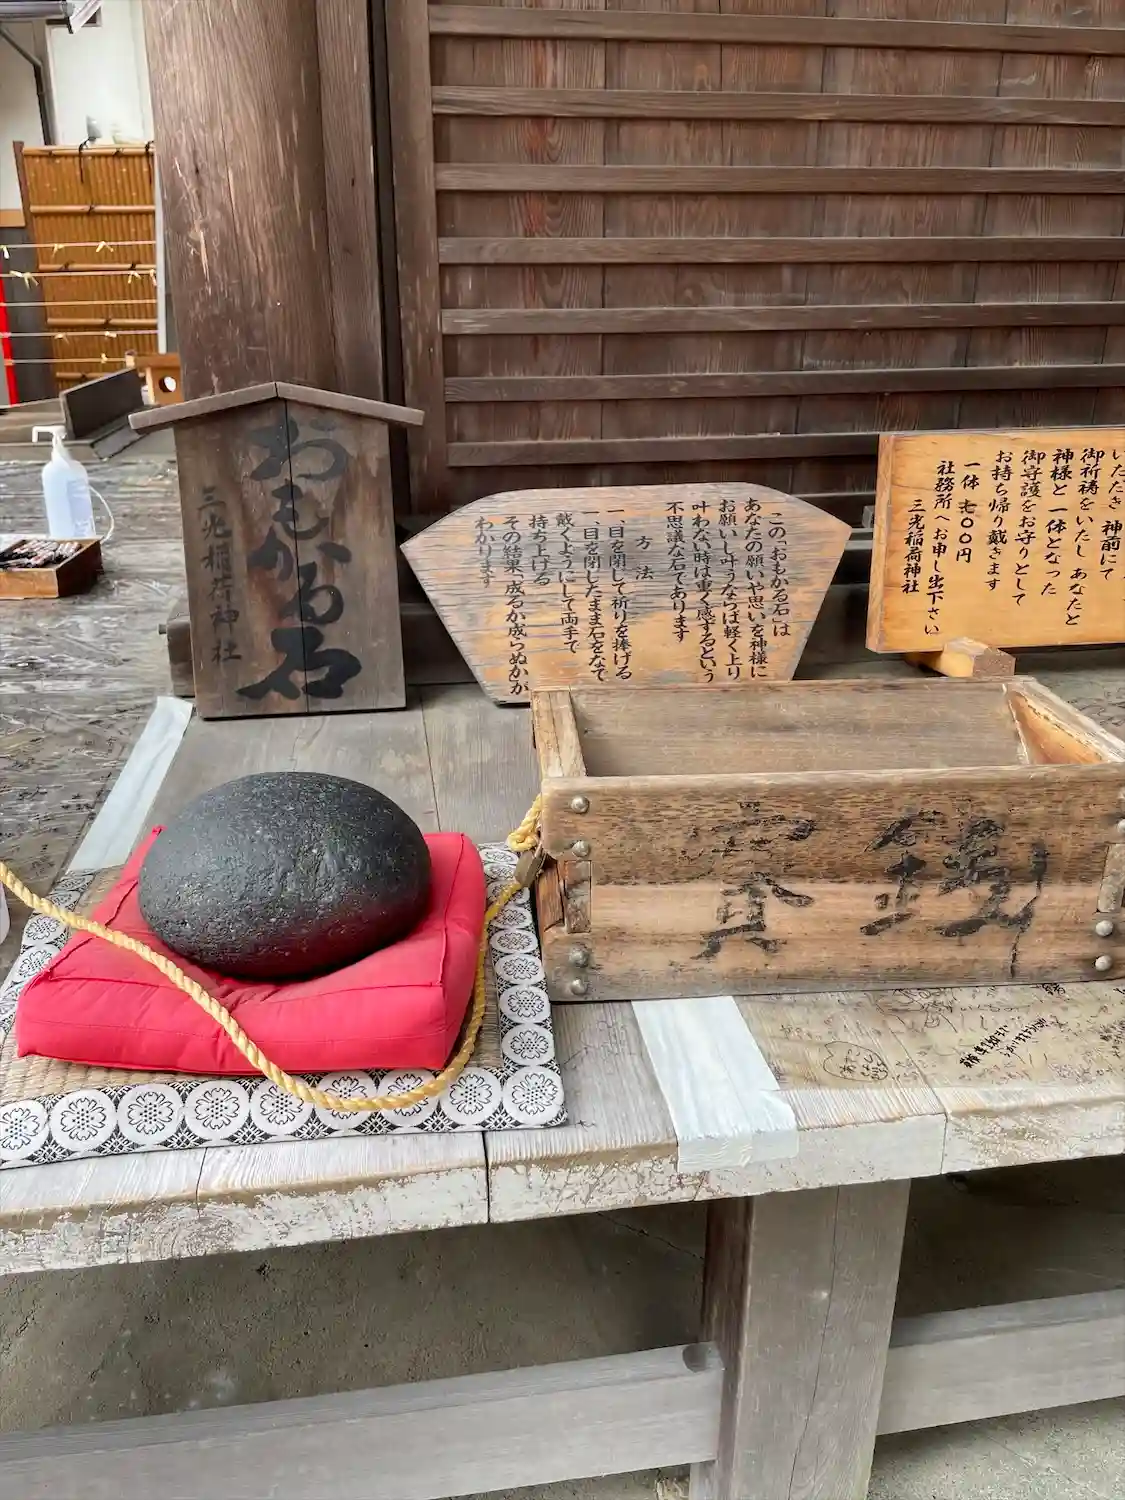 おもかる石
三光稲荷神社
この、「おもかる石」は
あなたの願いや思いを神様に
お願いし叶うならば軽く上り
叶わない時は重く感ずるという
不思議な石であります
方法
一、目を閉じて祈りを捧げる
一、目を閉じたまま石をなで
戴くようにして両手で
持ち上げる
その結果、成るか成らぬかが
わかります
いただき 神前にて
御祈祷をいたし あなたと
神様と一体となった
御守護をお守りとして
お持ち帰り戴きます
一体 七〇〇円
社務所へお申し出下さい
三光稲荷神社
賽銭